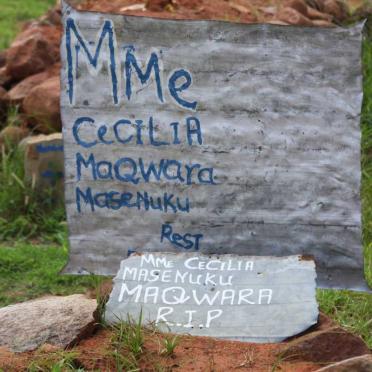 MMe
CeCILIA
MaQWara
Masenuku
Rest
MME CECILIA
MASENUKU
MAQWARA
R.I.P